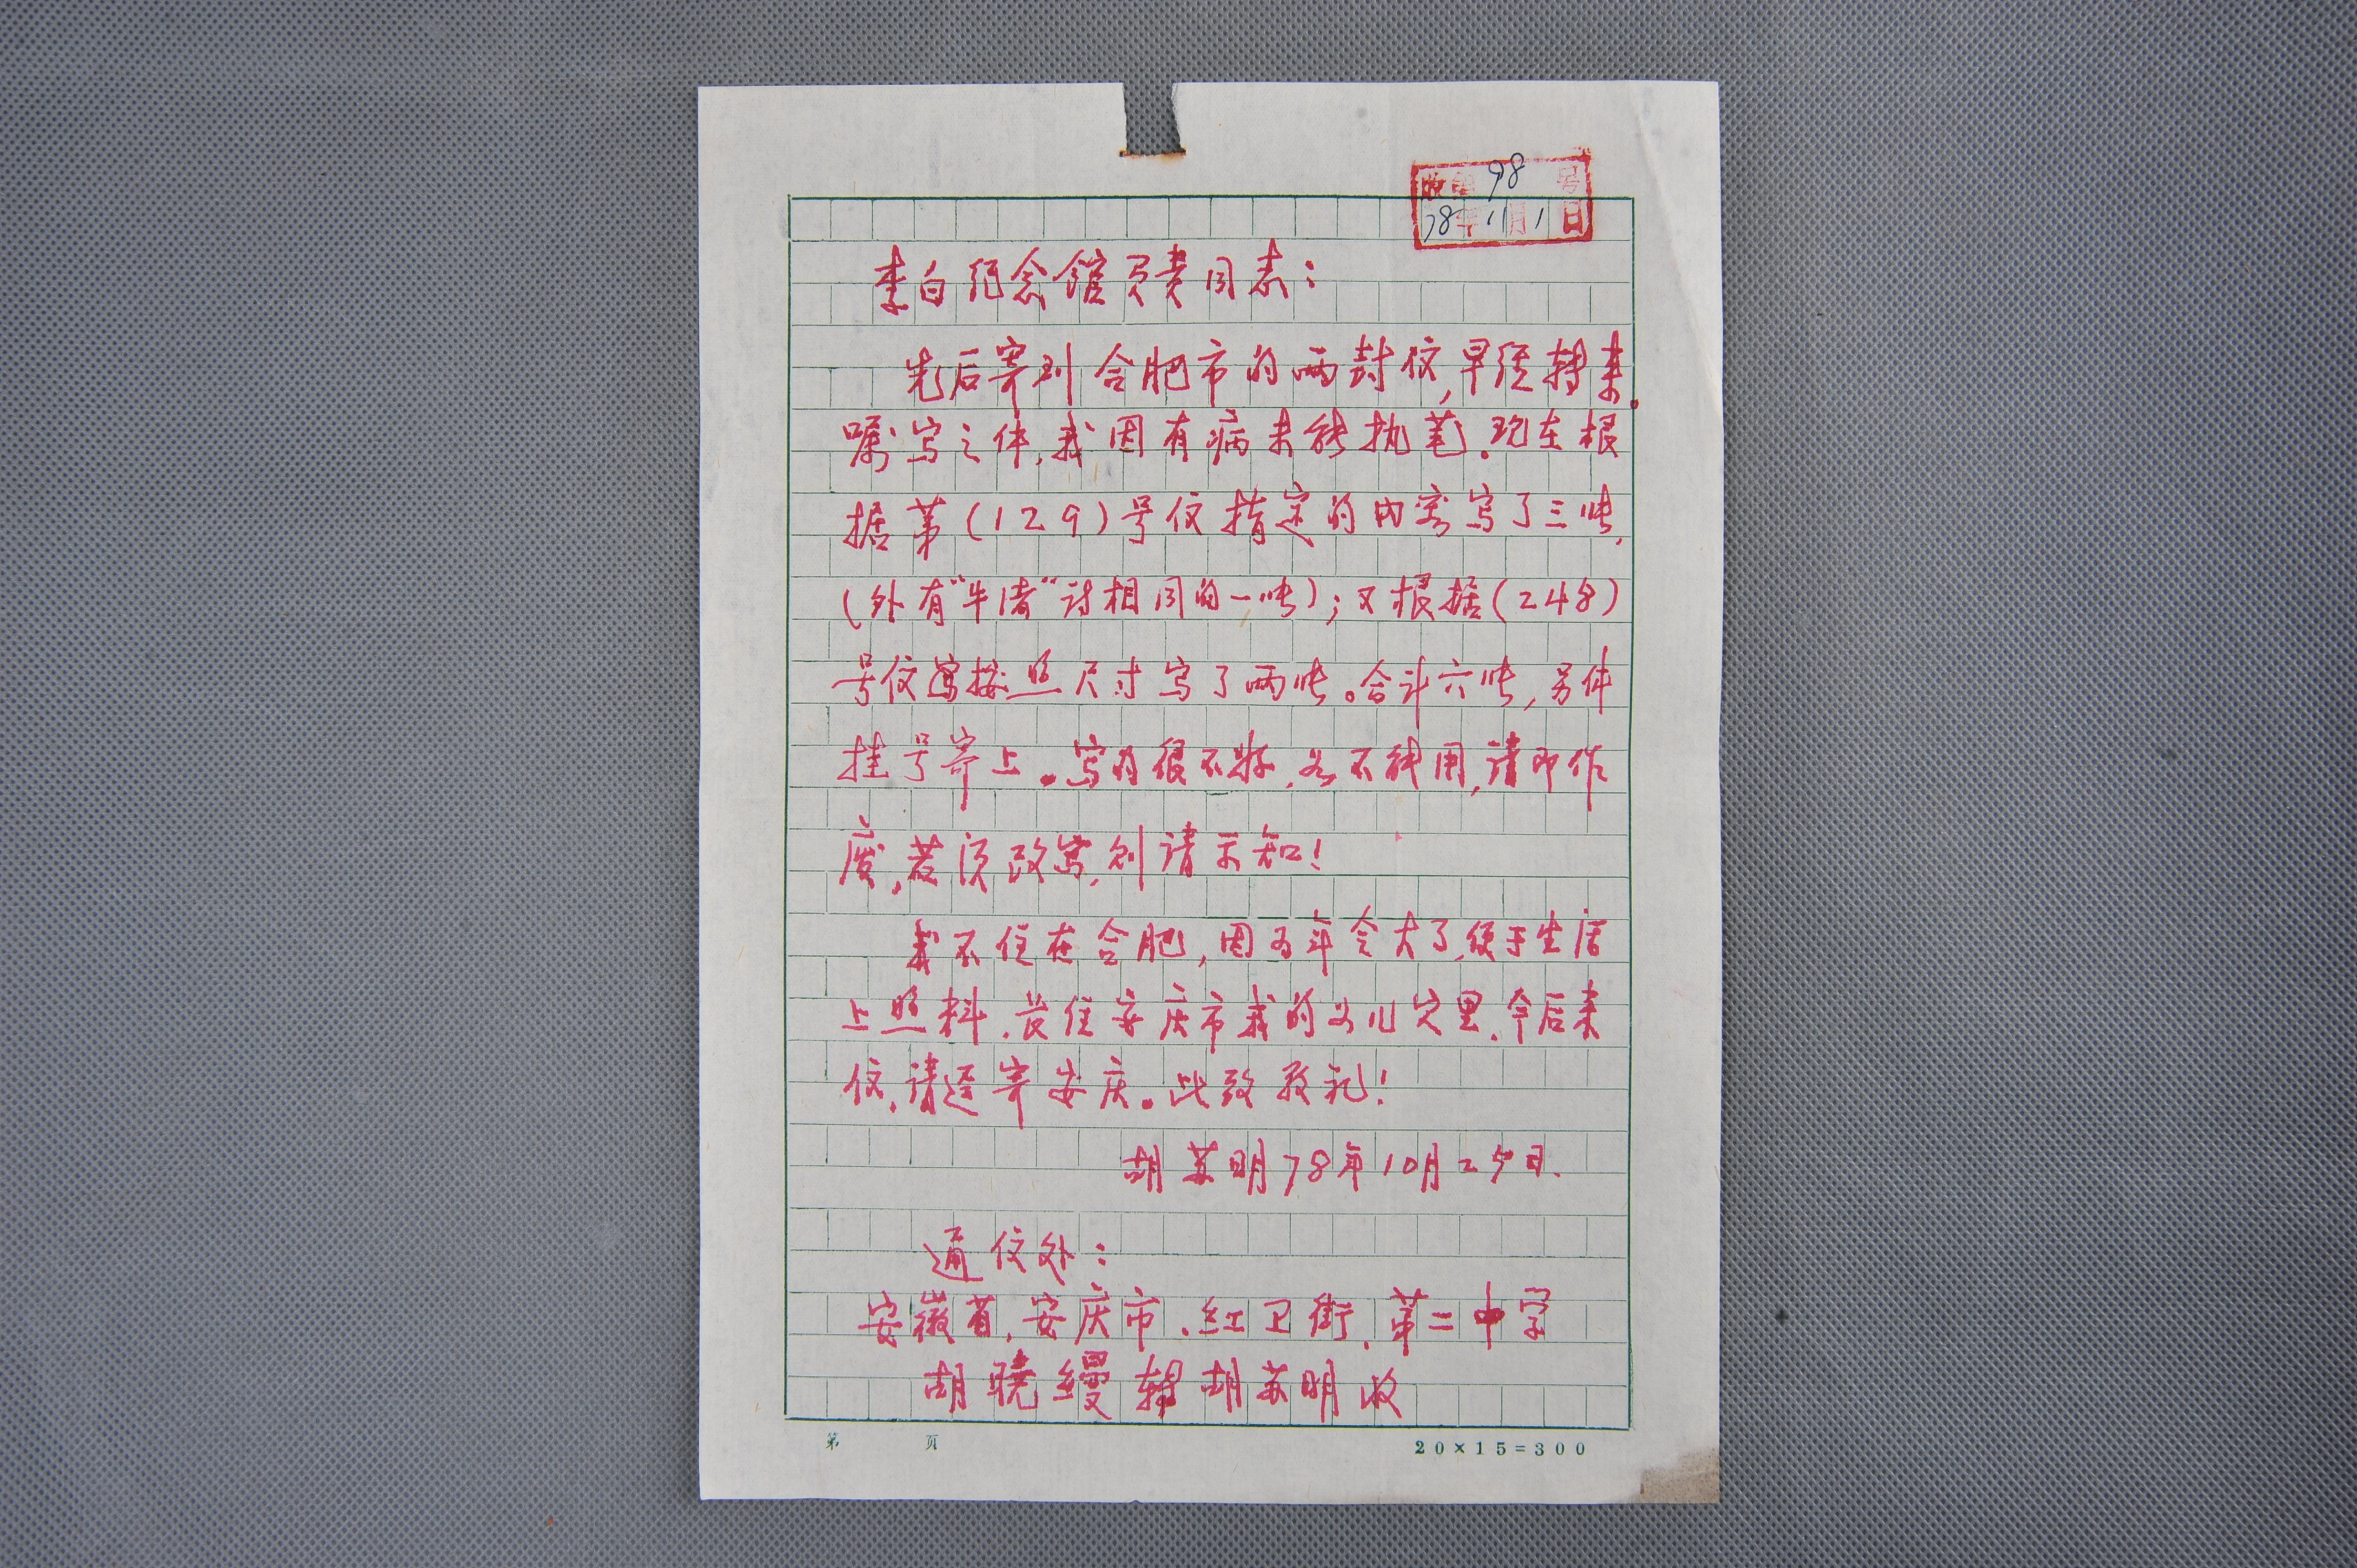 收第98号
78年11月1日
李白纪念馆负责同志：
先后寄到合肥市的两封信,早经转来。
嘱写之件,我因有病未能执笔。现在根
据第(129)号信指定的内容写了三张,
(外有“牛渚”诗相同的一张)；又根据(248)
号信写按照尺寸写了两张。合计六张,另件
挂号寄上。写的很不好,如不能用,请即作
废,若须改写,则请示知!
我不住在合肥,因为年令大了,便于生活
上照料,长住安庆市我的女儿家里,今后来
信,请迳寄安庆。此致敬礼!
胡苏明78年10月25日.
通信处：
安徽省,安庆市.红卫街,第二中学
胡晓缦转胡苏明收
第 页
20×15=300